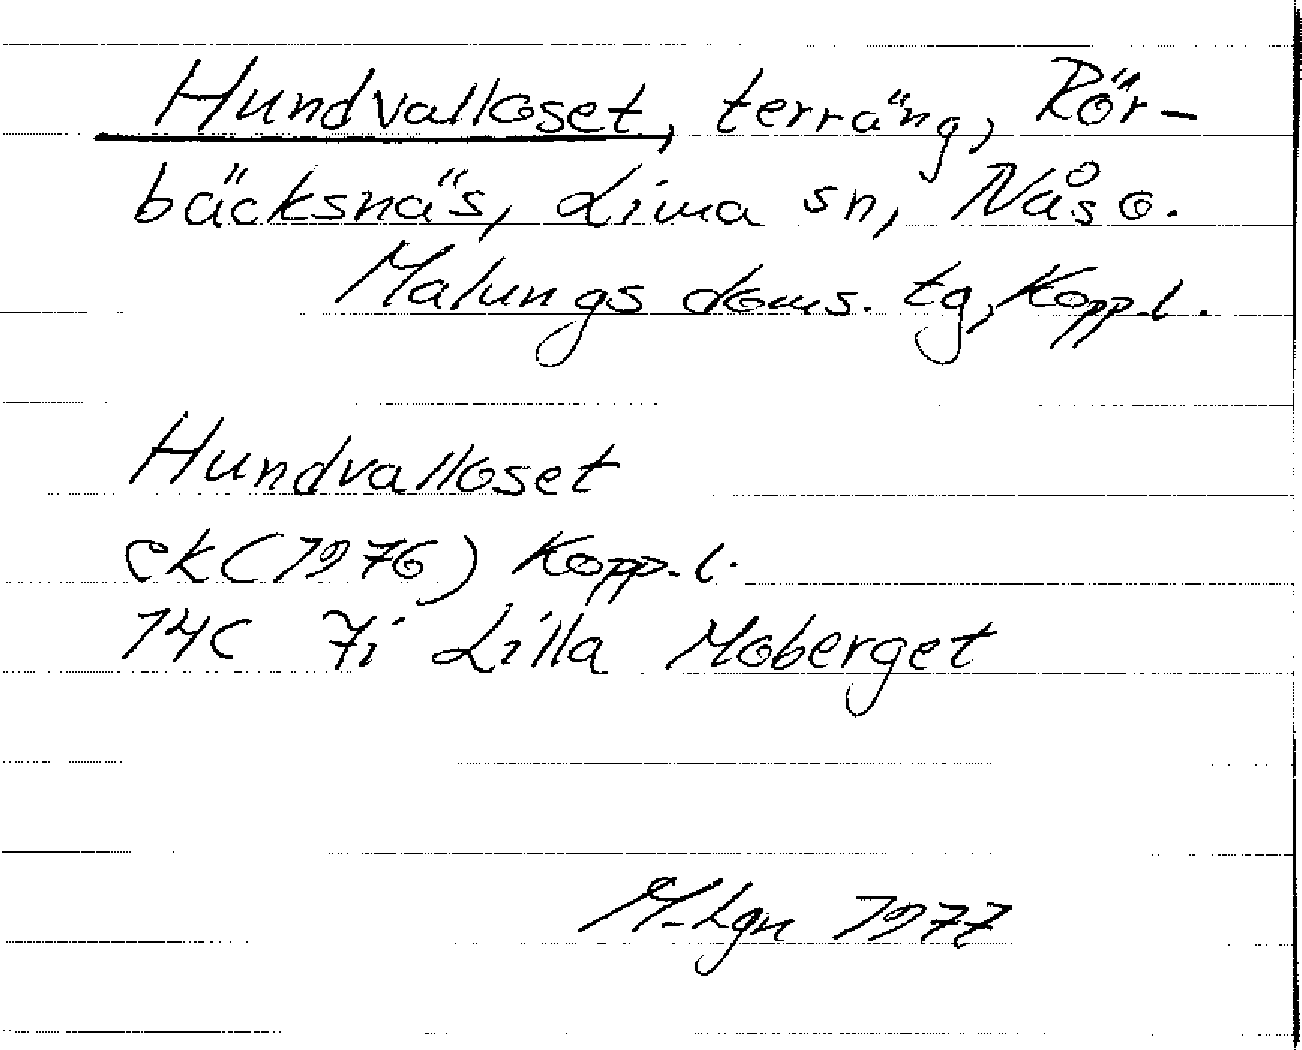 Hundvalloset, terräng, Rör-
bäcksnäs, Lima sn, Nås o.
Malungs doms. tg, Kopp.l.
Hundvalloset
ek (1976) Kopp.l.
14C 7i Lilla Moberget
M-Lgn 1977